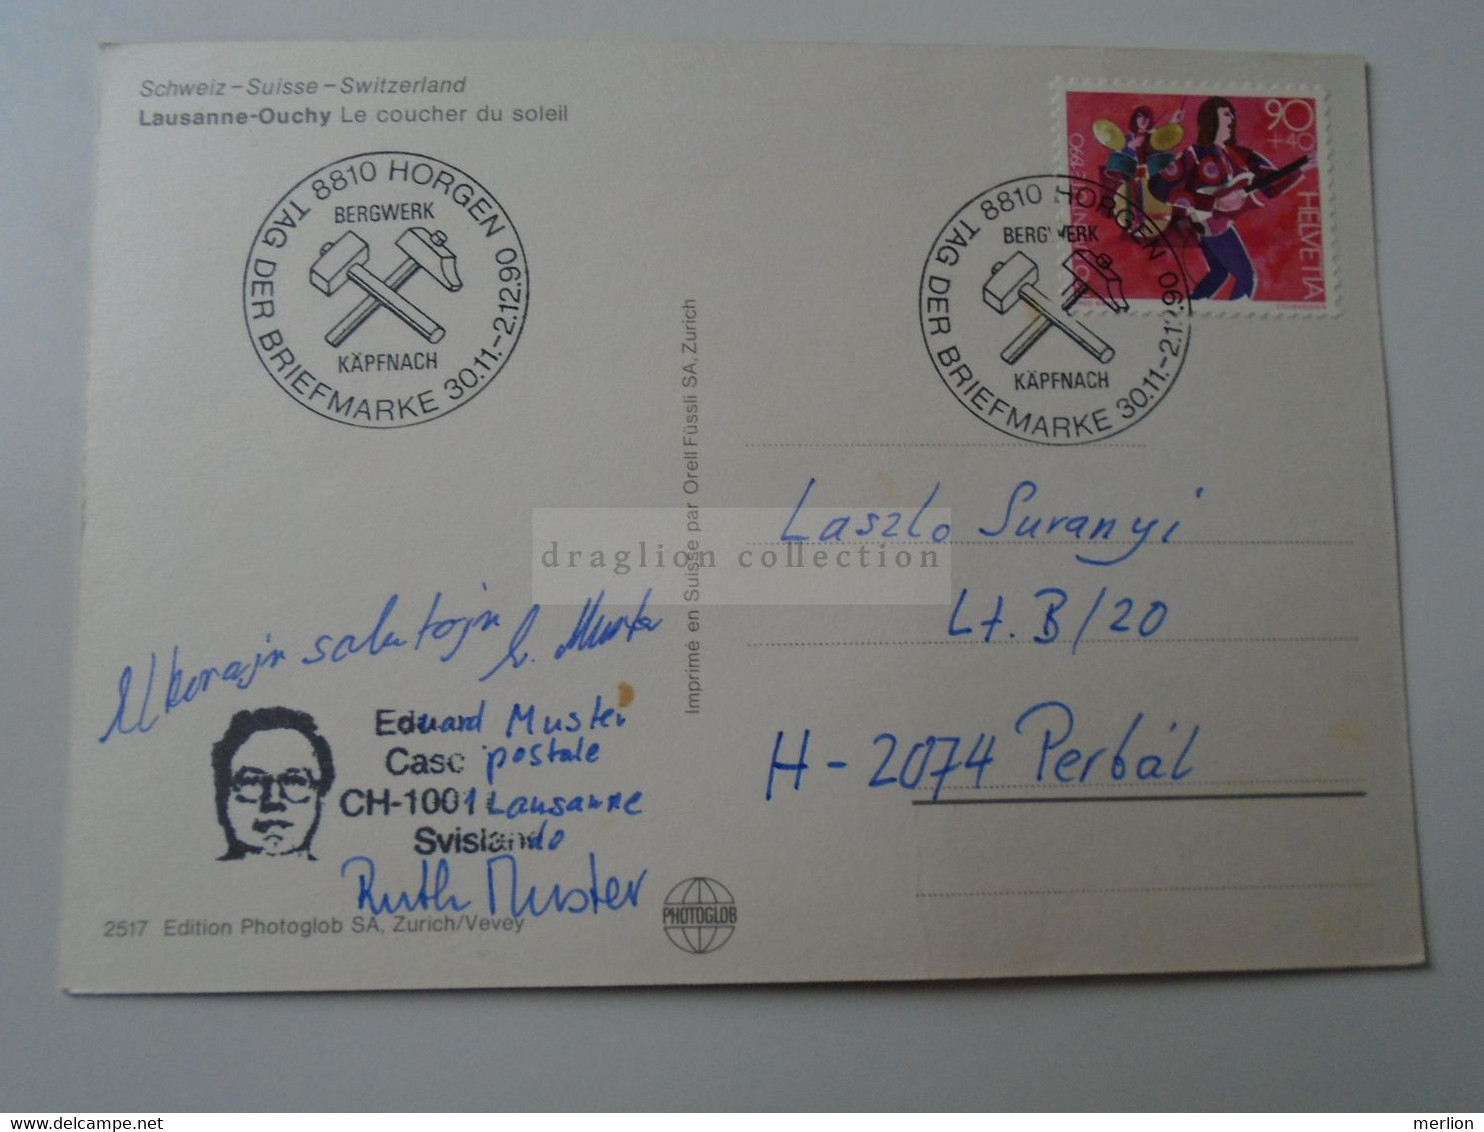 Schweiz – Suisse – Switzerland
Lausanne-Ouchy Le coucher du soleil
8810 HORGEN
BERGWERK
KÄPFNACH
TAG DER BRIEFMARKE 30.11.-2.12.90
90
+40
HELVETIA
8810 HORGEN
BERGWERK
KÄPFNACH
TAG DER BRIEFMARKE 30.11.-2.12.90
Imprimé en Suisse par Orell Füssli SA, Zurich
draglion collection
Laszlo Suranyi
Lt. B/20
H-2074 Perbál
Elkorajn salutojn E. Muster
Eduard Muster
Case postale
CH-1001 Lausanne
Svislando
Ruth Muster
2517 Edition Photoglob SA, Zurich/Vevey
PHOTOGLOB
merlion